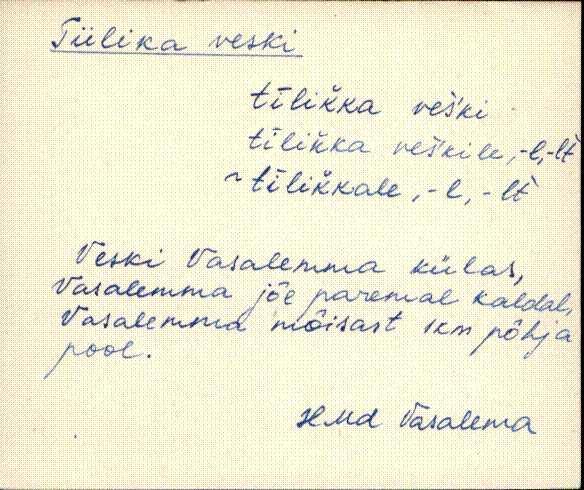 Tiilika veski
tīlik̆ka veški
tīlik̆ka veškile, -l, -lt̀
~ tīlik̆kale, -l, -lt̀
Veski Vasalemma külas,
Vasalemma jõe paremal kaldal,
Vasalemma mõisast 1 km põhja
pool.
HMd Vasalema